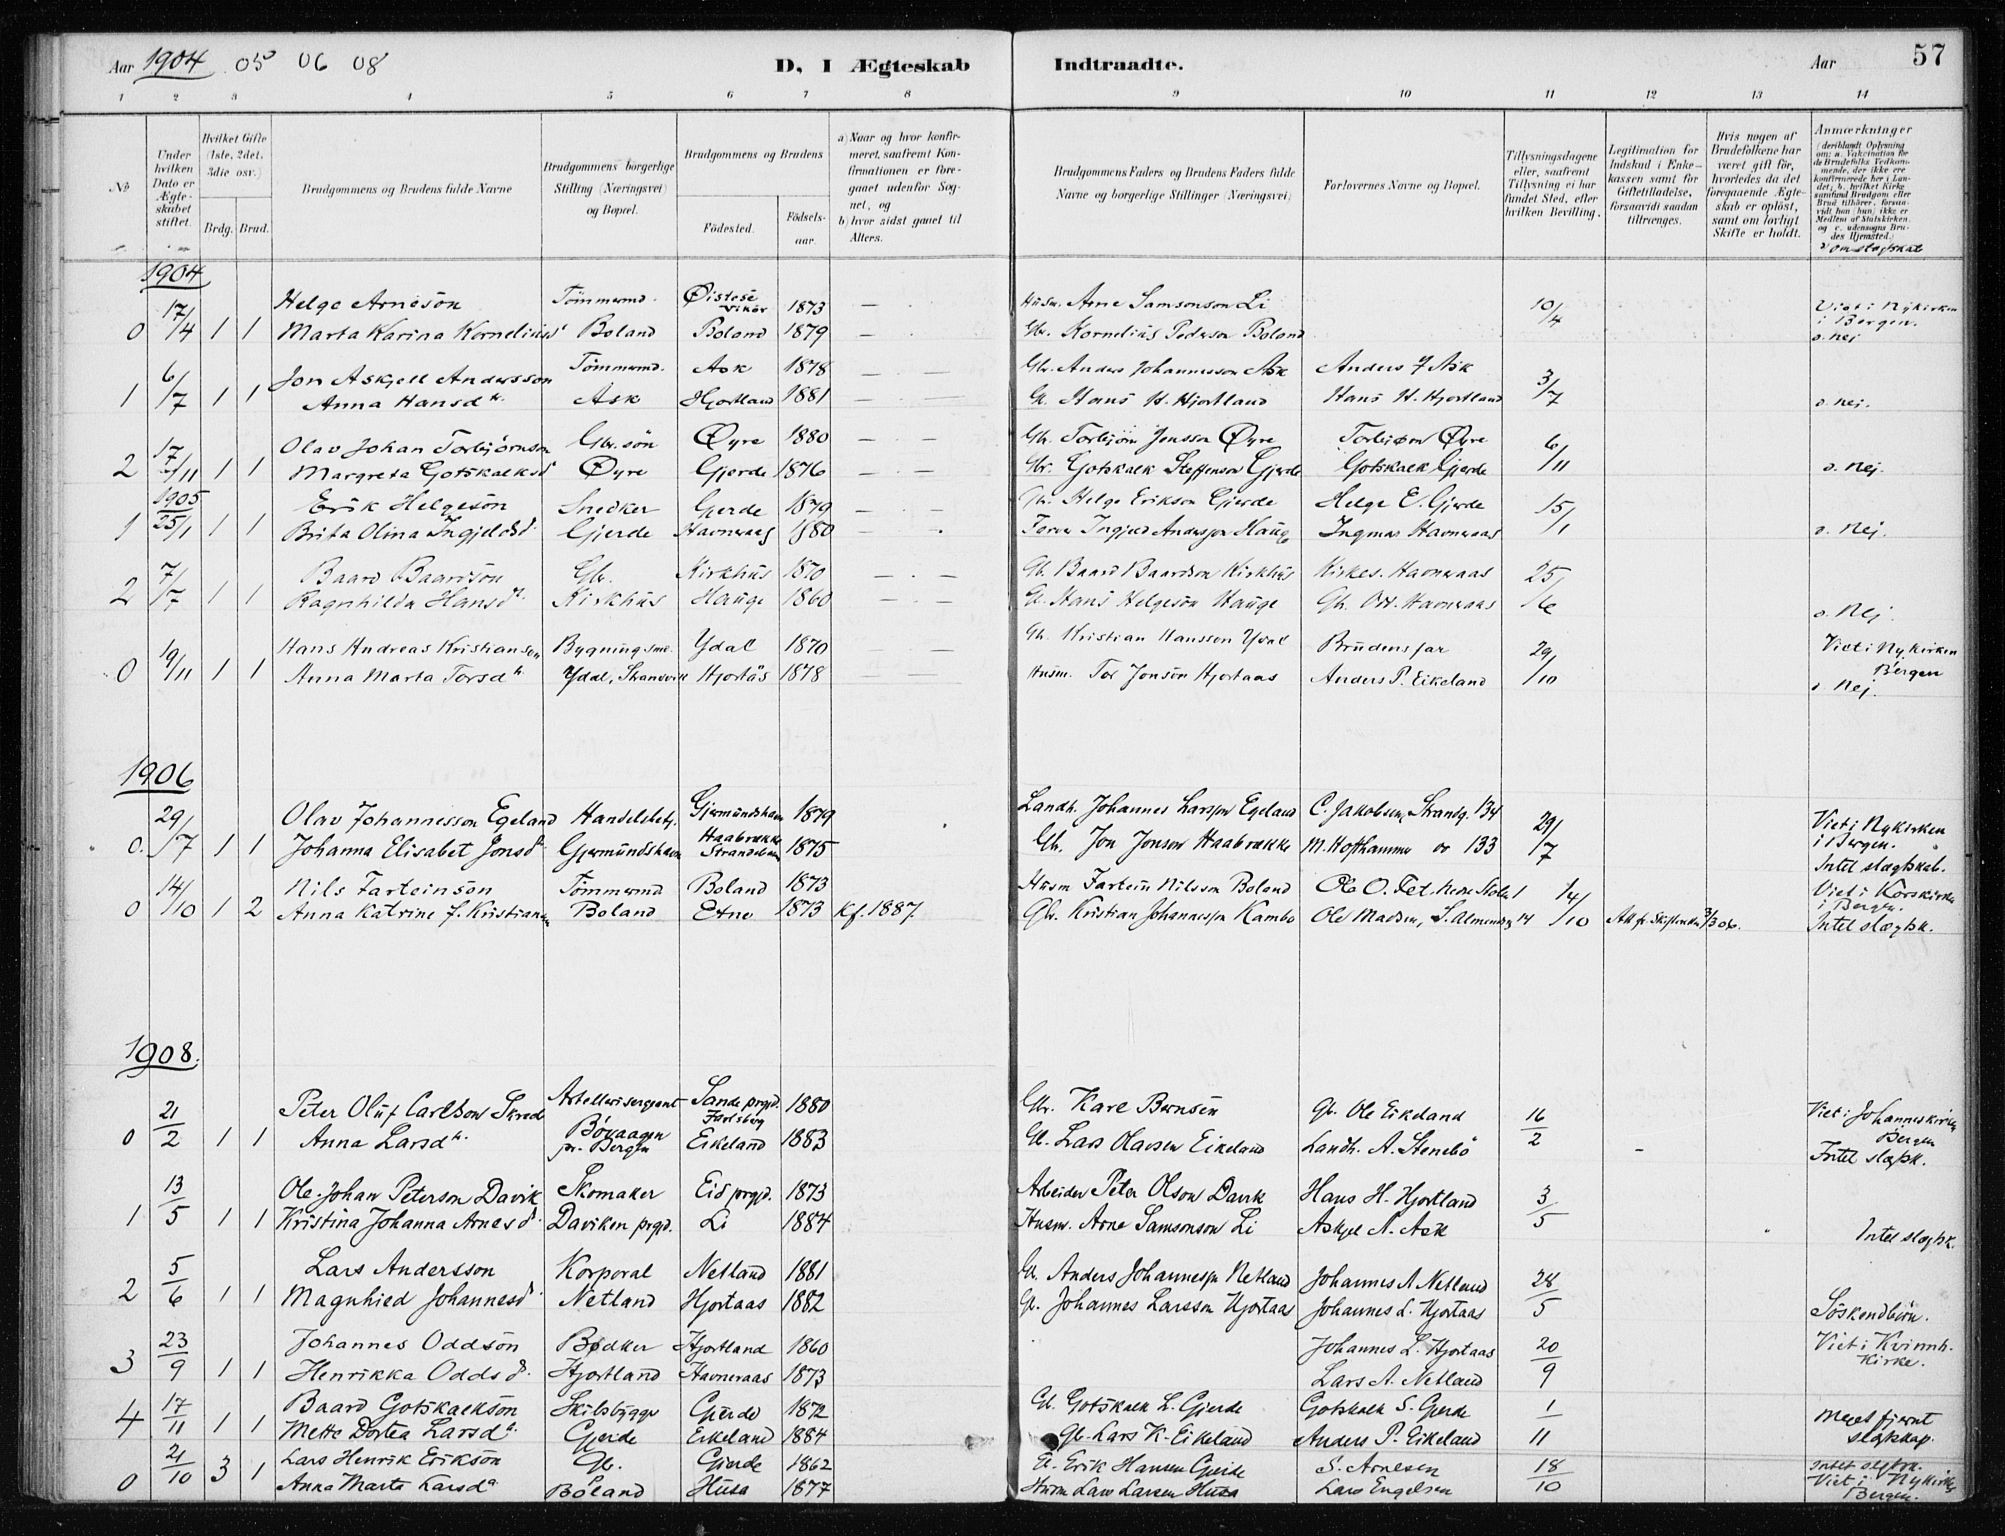 Aar 1904 05 06 08 D, I Ægteskab Indtraadte. Aar 57
1 2 3 4 5 6 7 8 9 10 11 12 13 14
No
Under hvilken Dato er Ægteskabet stiftet.
Hvilket Gifte (1ste, 2det, 3die osv.)
Brdg. Brud.
Brudgommens og Brudens fulde Navne
Brudgommens borgerlige Stilling (Næringsvei) og Bopæl.
Brudgommens og Brudens
Fødested. Fødselsaar.
a) Naar og hvor konfirmeret, saafremt Konfirmationen er foregaaet udenfor Sognet, og
b) hvor sidst gaaet til Alters.
Brudgommens Faders og Brudens Faders fulde Navne og borgerlige Stillinger (Næringsvei)
Forlovernes Navne og Bopæl.
Tillysningsdagene eller, saafremt Tillysning ei har fundet Sted, efter hvilken Bevilling.
Legitimation for Indskud i Enkekassen samt for Giftetilladelse, forsaavidt saadan tiltrænges.
Hvis nogen af Brudefolkene har været gift før, hvorledes da det foregaaende Ægteskab er opløst, samt om lovligt Skifte er holdt.
Anmærkninger (deriblandt Oplysning om: a. Vakcination for de Brudefolks Vedkommende, der ikke ere konfirmerede her i Landet; b. hvilket Kirkesamfund Brudgom eller Brud tilhører, forsaavidt han (hun) ikke er Medlem af Statskirken, og c. udensogns Brudes Hjemsted.)
om slegtskab
1904
17/4 Helge Arneson Tömmermd. Øistese Vikör 1873 — Husm. Arne Samsonson Li 10/4 Viet i Nykirken i Bergen.
0 1 1 Marta Karina Korneliusd Boland Boland 1879 — Gbr. Kornelius Pederson Boland o. nej
6/7 Jon Askjell Andersson Tömmermd. Ask 1878 — — Gbr. Anders Johannesson Ask Anders J Ask 3/7
1 1 1 Anna Hansdtr. Ask Hjortland 1881 — — G. Hans H. Hjortland Hans H. Hjortland o. nej.
17/11 Olav Johan Torbjörnson Gbr. sön Øyre 1880 — — Gb. Torbjörn Jonsson Øyre Torbjörn Øyre 6/11
2 1 1 Margreta Gotskalksd Øyre Gjerde 1876 — — Gbr. Gotskalk Steffenson Gjerde Gotskalk Gjerde o. nej.
1905
25/1 Erik Helgeson Snedker Gerde 1879 — — Gb. Helge Erikson Gjerde Helge E. Gjerde 15/1
1 1 1 Brita Olina Ingjeldsd. Gjerde Havneraas 1880 — Ingjeld Anderson Hauge Ingmar Havneraas o. Nej.
7/7 Baard Baardson Gb. Kirkhus 1870 — — Gb. Baard Baardson Kirkhus Kirkes. Havneraas 25/6
2 1 1 Ragnhilda Hansdt. Kirkhus Hauge 1860 — — G. Hans Helgeson Hauge Gb. Havneraas o. Nej
19/11 Hans Andreas Kristiansen Bygningsme. Ydal 1870 — — Gb. Kristian Hansson Ydal Brudens far 29/10 Viet i Nykirken Bergen
0 1 1 Anna Marta Torsdtr. Ydal, Strandvik Hjortås 1878 — — Husm. Tor Jonson Hjortaas Anders P. Eikeland o. Nej.
1906
29/7 Olav Johannesson Egeland Handelsbetj. Gjermundshavn 1879 Landh. Johannes Larsson Egeland C. Jakobsen, Strandg. 134 29/7 Viet i Nykirken i Bergen.
0. 1 1 Johanna Elisabet Jonsd Gjermundshavn Haabrække Strandebarm 1875 Gb. Jon Jonson Haabrække M. Hofthammer 133 Intet slægtskab.
14/10 Nils Farteinson Tömmermd Boland 1873 Husm Fartein Nilsson Boland Ole O. Tet 14/10 Viet i Korskirken i Bergen.
0 1 2 Anna Katrine f. Kristiansen Boland Etne 1873 Kf. 1887. Gbr. Kristian Johannesson Kambo Ole Madsen, S. Almenning 14 Att. fr. Skifteretten 3/3 06. Intet slægtsk.
1908.
21/2 Peter Oluf Carlson Skrede Artellerisergeant Sande prgjd. Jarlsberg 1880 Gbr. Kare Bernsen Gb. Ole Eikeland 16/2 Viet i Johanneskirken Bergen
0 1 1 Anna Larsdtr. Bövaagen pr. Bergen Eikeland 1883 G. Lars Olavsen Eikeland Landh. A. Stenebö – Intet slægtsk.
13/5 Ole Johan Peterson Davik Skomaker Eid prgjd. 1873 Arbeider Peter Olson Davik Hans H. Hjortland 3/5
1 1 1 Kristina Johanna Arnesd. Daviken prgd. Li 1884 Husm. Arne Samsonson Li Askjel N. Ask Intet slægtsk.
5/6 Lars Andersson Korporal Netland 1881 G. Anders Johannesson Netland Johannes A Netland 28/5
2 1 1 Magnhied Johannesd. Netland Hjortaas 1882 G. Johannes Larsson Hjortaas Johannes L. Hjortaas Söskendbörn.
23/9 Johannes Oddsön Bødker Hjortland 1860 Johannes L. Hjortaas 20/9 Viet i Kvinnh. Kirke.
3 1 1 Henrikka Oddsd. Hjortland Havneraas 1873 Lars A. Netland
17/11 Baard Gotskalkson Skibsbygge Gjerde 1872 G. Gotskalk L. Gjerde Gotskalk S. Gjerde 1/11 Meget fjernt slægtskap.
4 1 1 Mette Dortea Larsdt. Gjerde Eikeland 1884 Gb. Lars K. Eikeland Anders P. Eikeland
21/10 Lars Henrik Erikson Gb. Gjerde 1862 G. Erik Hansen Gjerde S. Arnesen 18/10 Intet slgtsk.
0 3 1 Anna Marta Larsda Böland Husa 1877 Husm Lars Larsen Husa Lars Engelsen Viet i Nykirke Bergen.